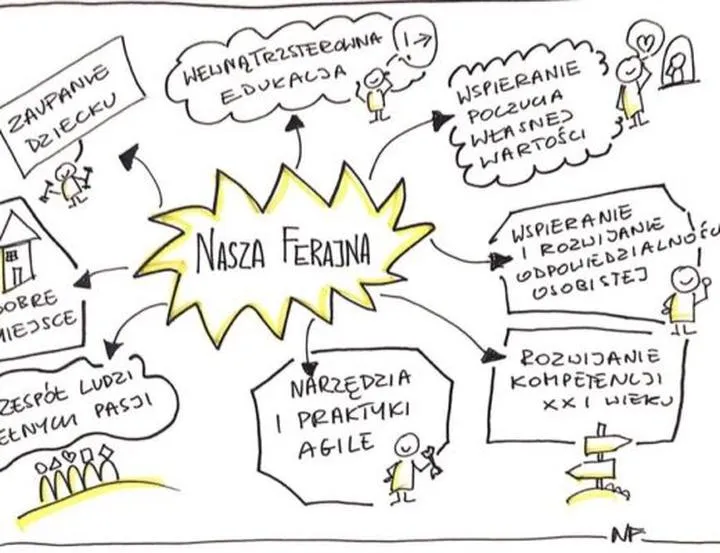 ZAUFANIE
DZIECKU
WEWNĄTRZSTEROWNA
EDUKACJA
WSPIERANIE
POCZUCIA
WŁASNEJ
WARTOŚCI
NASZA FERAJNA
WSPIERANIE
I ROZWIJANIE
ODPOWIEDZIALNOŚCI
OSOBISTEJ
DOBRE
MIEJSCE
ZESPÓŁ LUDZI
EŁNYCH PASJI
NARZĘDZIA
I PRAKTYKI
AGILE
ROZWIJANIE
KOMPETENCJI
XXI WIEKU
NF